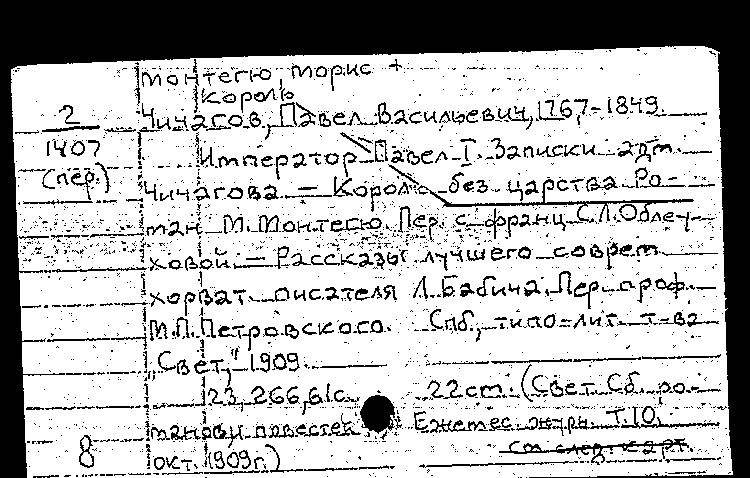 Монтегю, Морис +
Король
2 Чичагов, Павел Васильевич, 1767-1849.
1407 Император Павел I. Записки адм.
(пер.) Чичагова. — Король без царства. Ро-
ман М. Монтегю. Пер. с франц. С.Л. Облеу-
ховой. — Рассказы лучшего соврем.
хорват. писателя Л. Бабича. Пер. проф.
М.П. Петровского. Спб., типо-лит. т-ва
"Свет," 1909.
123, 266, 61с. 22см. (Свет. Сб. ро-
манов и повестей. Ежемес. журн. Т.10,
8 окт. 1909г.)
см след. карт.